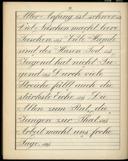 Aller Anfang ist schwer.
Täuschen macht kein
Tauschen. Viele Hunde
sind des Hasen Tod.
Jugend hat nicht Tu-
gend. Durch viele
Streiche fällt auch die
stärkste Eiche. Den
Alten zum Rat, die
Jungen zur That.
Arbeit macht uns frohe
Tage.